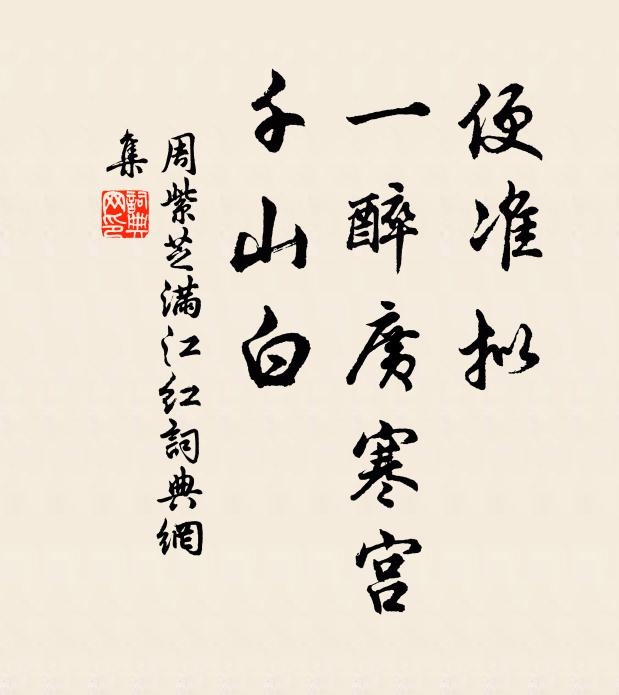 便准拟
一醉廣寒宫
千山白
周紫芝满江红詞典網
集
詞典
网印